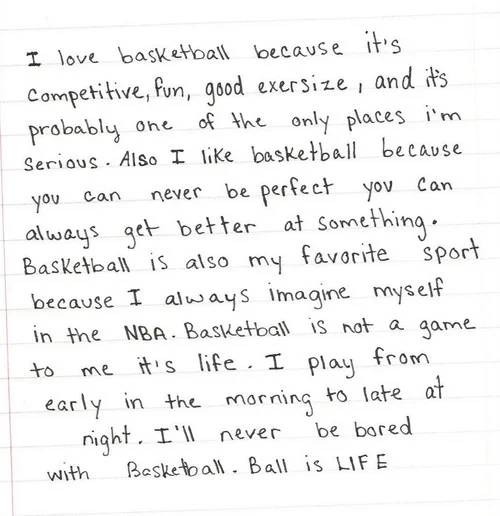 I love basketball because it's
competitive, fun, good exersize, and it's
probably one of the only places i'm
serious. Also I like basketball because
you can never be perfect you can
always get better at something.
Basketball is also my favorite sport
because I always imagine myself
in the NBA. Basketball is not a game
to me it's life. I play from
early in the morning to late at
night. I'll never be bored
with Basketball. Ball is LIFE